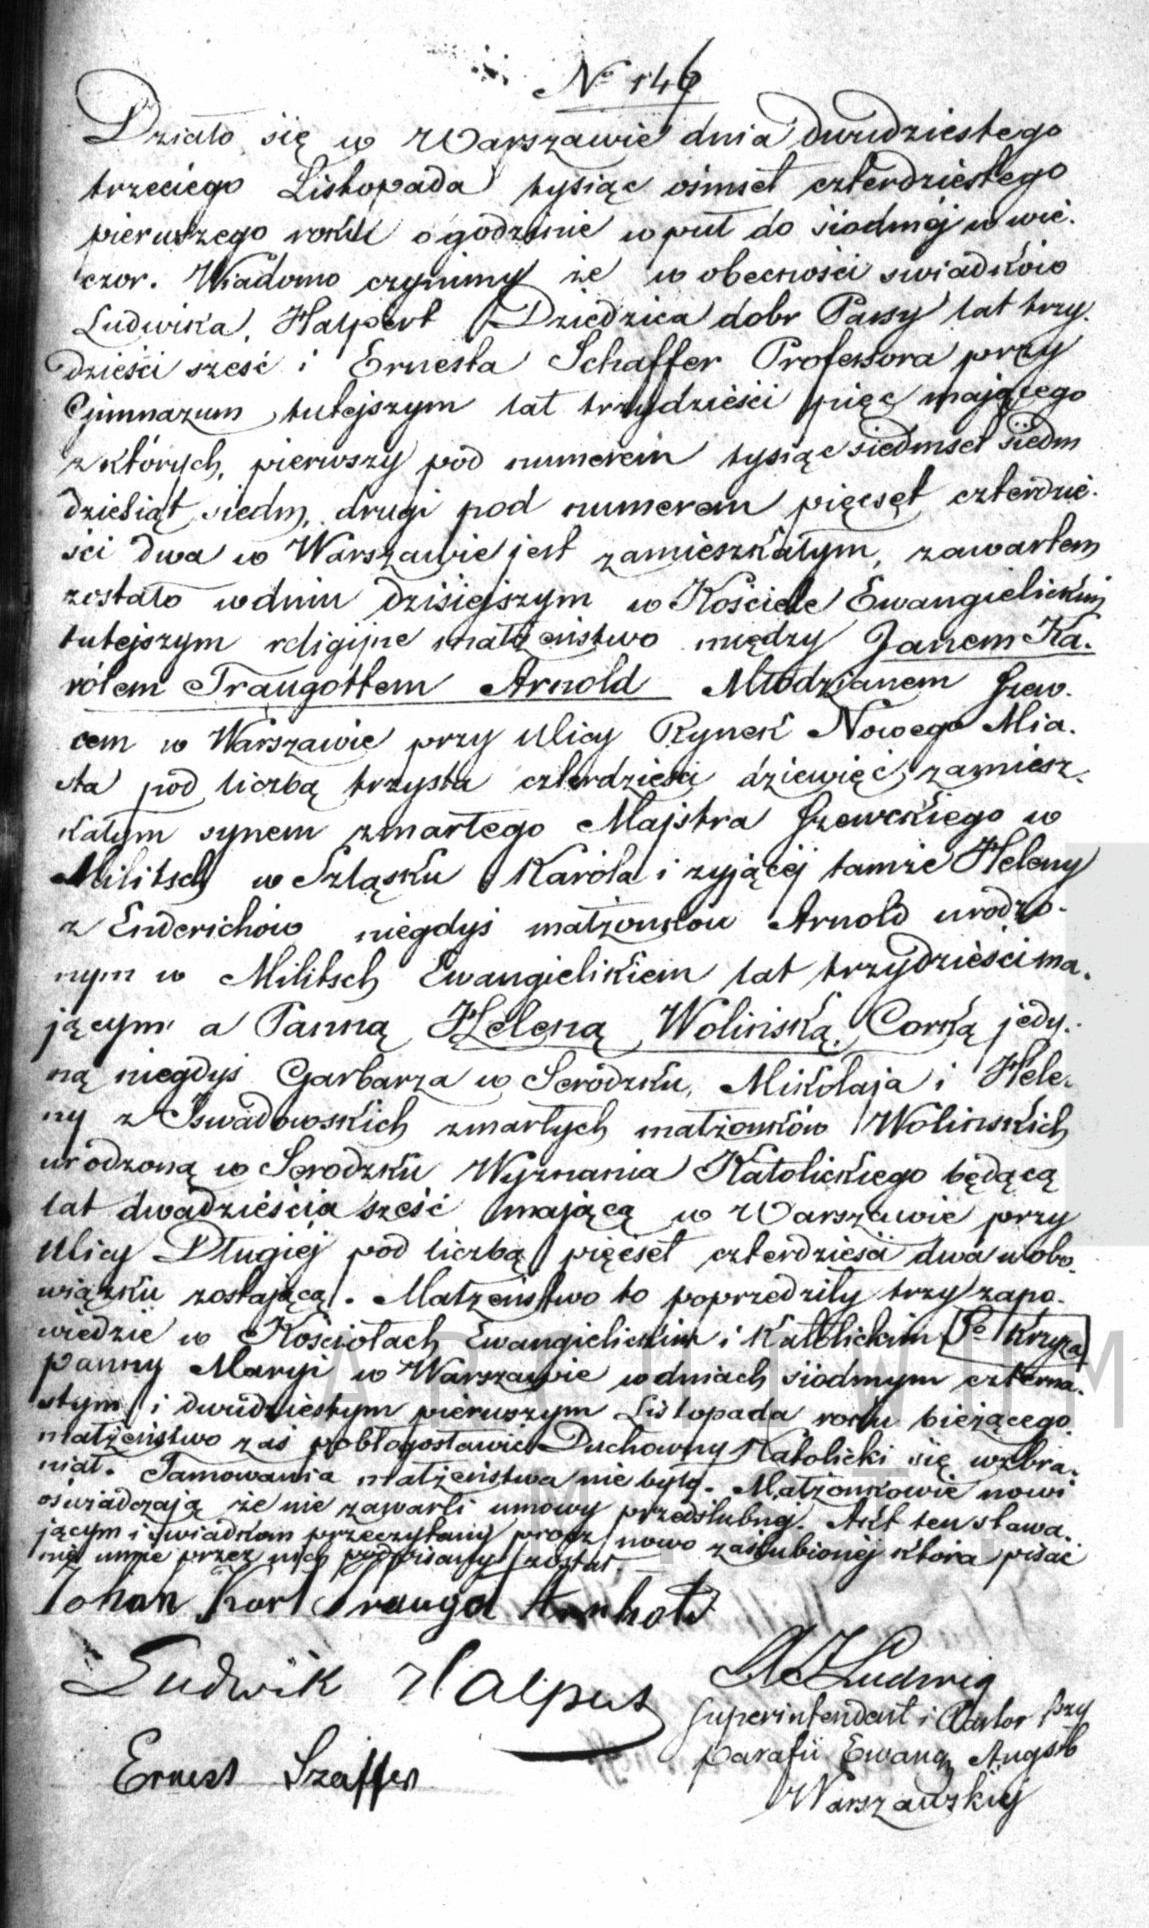 No 146
Działo się w Warszawie dnia dwudziestego
trzeciego Listopada tysiąc ośmset czterdziestego
pierwszego roku o godzinie w puł do siodmej w wie-
czor. Wiadomo czynimy że w obecności swiadków
Ludwika Halpert Dziedzica dobr Passy lat trzy-
dzieści sześć i Ernesta Schaffer Professora przy
Gimnazum tutejszym lat trzydzieści pięc mającego
z których, pierwszy pod numerem tysiąc siedmset siedm
dziesiąt siedm, drugi pod numerem pięcset czterdzie-
ści dwa w Warszawie jest zamieszkałym, zawartem
zostało w dniu dzisiejszym w Kościele Ewangielickim
tutejszym religijne małżeństwo między Janem Ka-
rólem Traugottem Arnold Młodzianem Szew-
cem w Warszawie przy Ulicy Rynek Nowego Mia-
sta pod liczbą trzysta czterdzieści dziewięć zamiesz-
kałym synem zmarłego Majstra Szewckiego w
Militsch w Szląsku Karóla i żyjącéj tamże Heleny
z Enderichów niegdyś małżonków Arnold urodzo-
nym w Militsch Ewangielikiem lat trzydzieści ma-
jącym a Panną Heleną Wolińską, Corką jedy-
ną niegdyś Garbarza w Serodzku, Mikołaja i Hele-
ny z zmarłych małżonków Wolinskich
urodzoną w Serodzku Wyznania Katolickiego będącą
lat dwadzieścia sześć mającą w Warszawie przy
Ulicy Długiej pod liczbą pięcset czterdzieści dwa w obo-
wiązku zostającą. Małżeństwo to poprzedziły trzy zapo-
wiedzie w Kościołach Ewangielickim i Katolickim So Krzyża
Panny Maryi w Warszawie w dniach siódmym czterna-
stym i dwudziestym pierwszym Listopada roku bieżącego
małżeństwo zaś pobłogosławić Duchowny Katolicki się wzbra-
niał. Tamowania małżeństwa nie było. Małżonkowie nowi
oświadczają że nie zawarli umowy przedślubnej. Akt ten stawa-
jącym i świadkom przeczytany procz nowo zaślubionej która pisać
nie umie przez nich podpisany został.
Johan Karl Traugot Arnhold
Ludwik Halpert
Ernest Szeffer
Ludwig
Superintendent i Pastor przy
parafii Ewang Augsb
Warszawskiej
ARCHIWUM